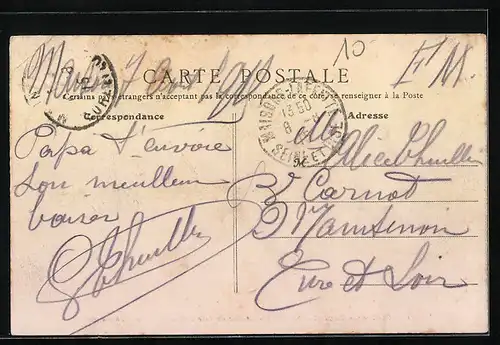 10
F M
CARTE POSTALE
Certains pays étrangers n'acceptant pas la correspondance de ce côté, se renseigner à la Poste
Correspondance
Adresse
MAISONS-LAFFITTE
13 50
8 -8
SEINE-ET-OISE
Papa t'envoie
son meilleur
baiser
Mlle Alice
Bd Carnot
Maintenon
Eure et Loir